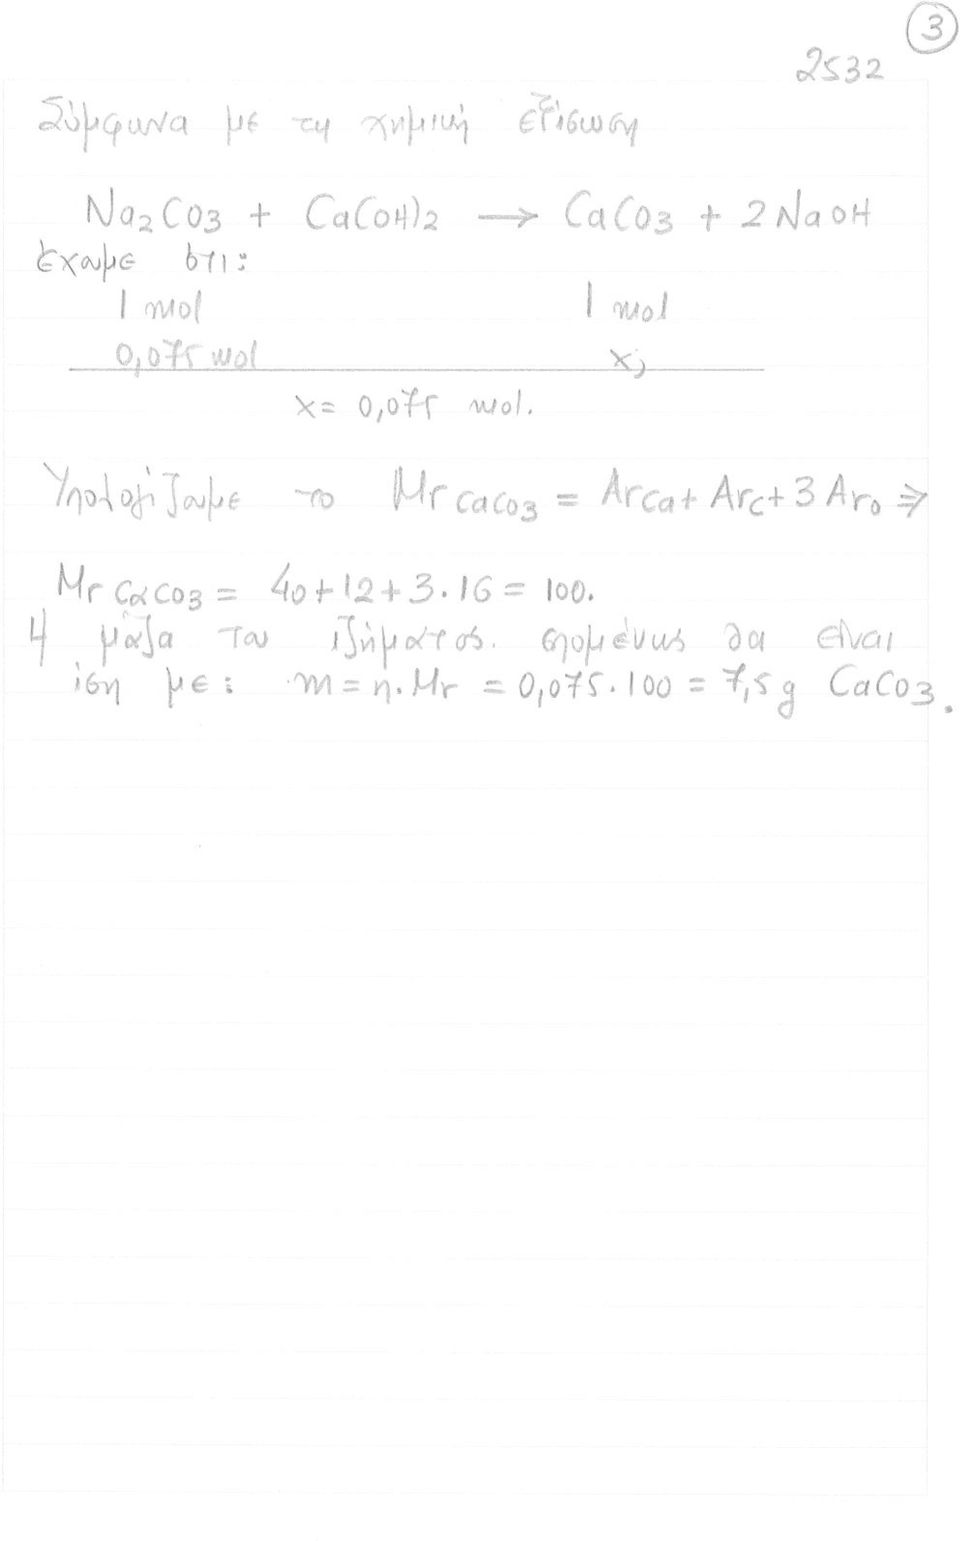 3
2532
Σύμφωνα με τη χημική εξίσωση
Na2CO3 + Ca(OH)2 → CaCO3 + 2NaOH
έχουμε ότι:
1 mol 1 mol
0,075 mol x;
x= 0,075 mol.
Υπολογίζουμε το Mr CaCO3 = ArCa + ArC + 3 ArO ⇒
Mr CaCO3 = 40+12+3.16 = 100.
Η μάζα του ιζήματος. επομένως θα είναι
ίση με: m = n.Mr = 0,075.100 = 7,5g CaCO3.